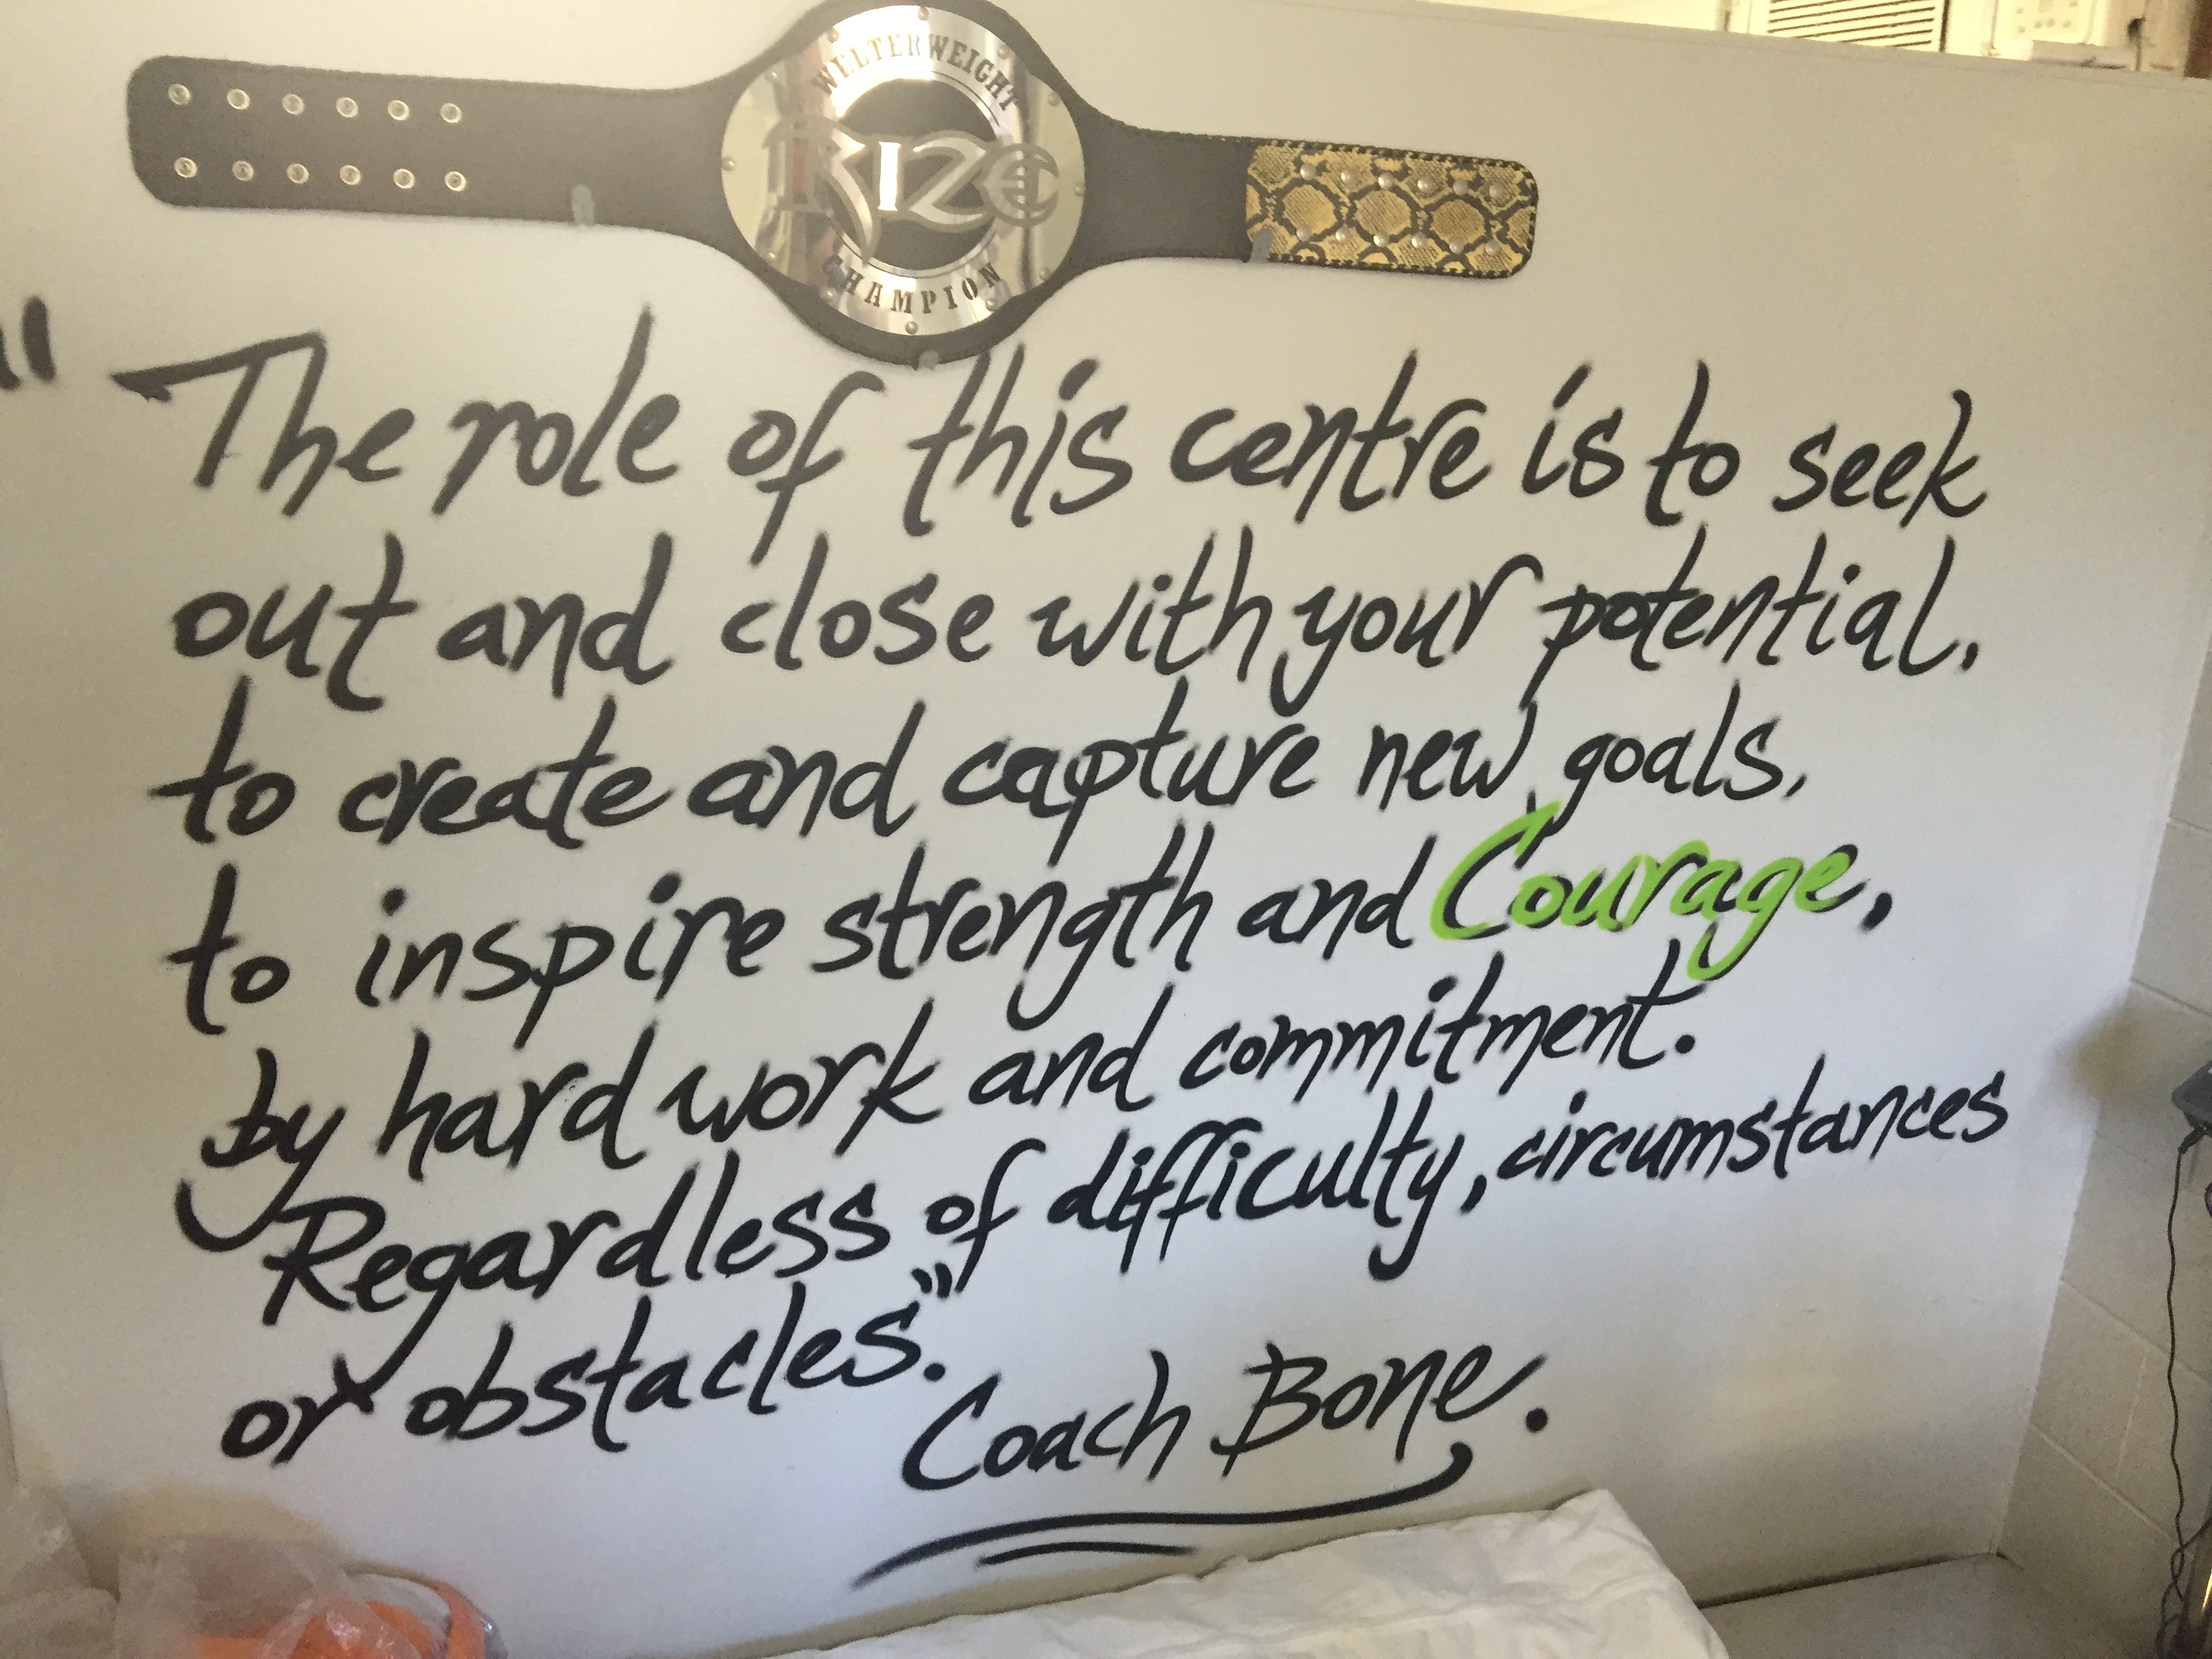 WELTERWEIGHT
RIZE
CHAMPION
"The role of this centre is to seek
out and close with your potential,
to create and capture new goals,
to inspire strength and Courage,
by hard work and commitment.
Regardless of difficulty, circumstances
or obstacles."
Coach Bone.